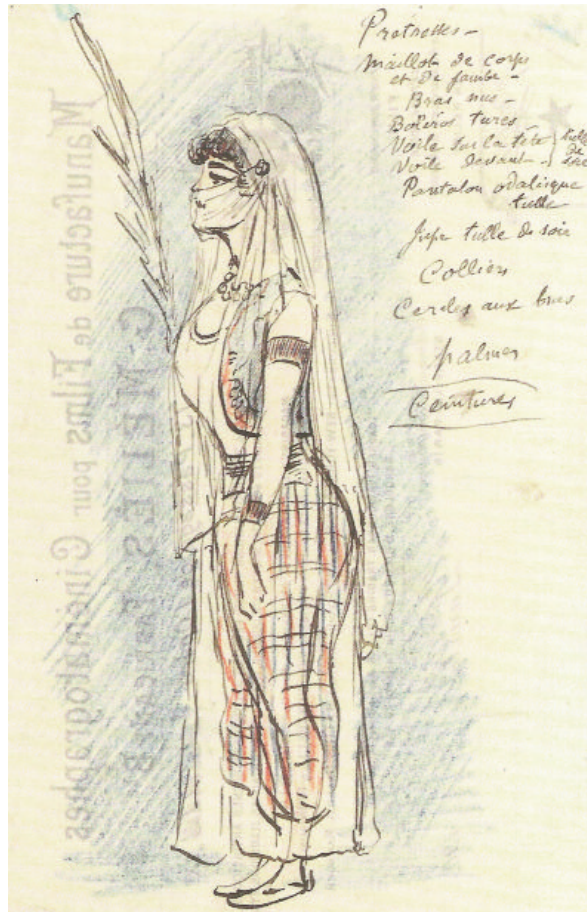 Pretresses -
Maillot de corps
et de jambe -
Bras nus -
Boléros turcs
Voile sur la tête
Voile devant -
de
Pantalon odalisque
tulle
Jupe tulle de soie
Colliers
Cercles aux bras
palmes
Ceintures
Manufacture de Films pour Cinématographes
G. MÉLIÈS